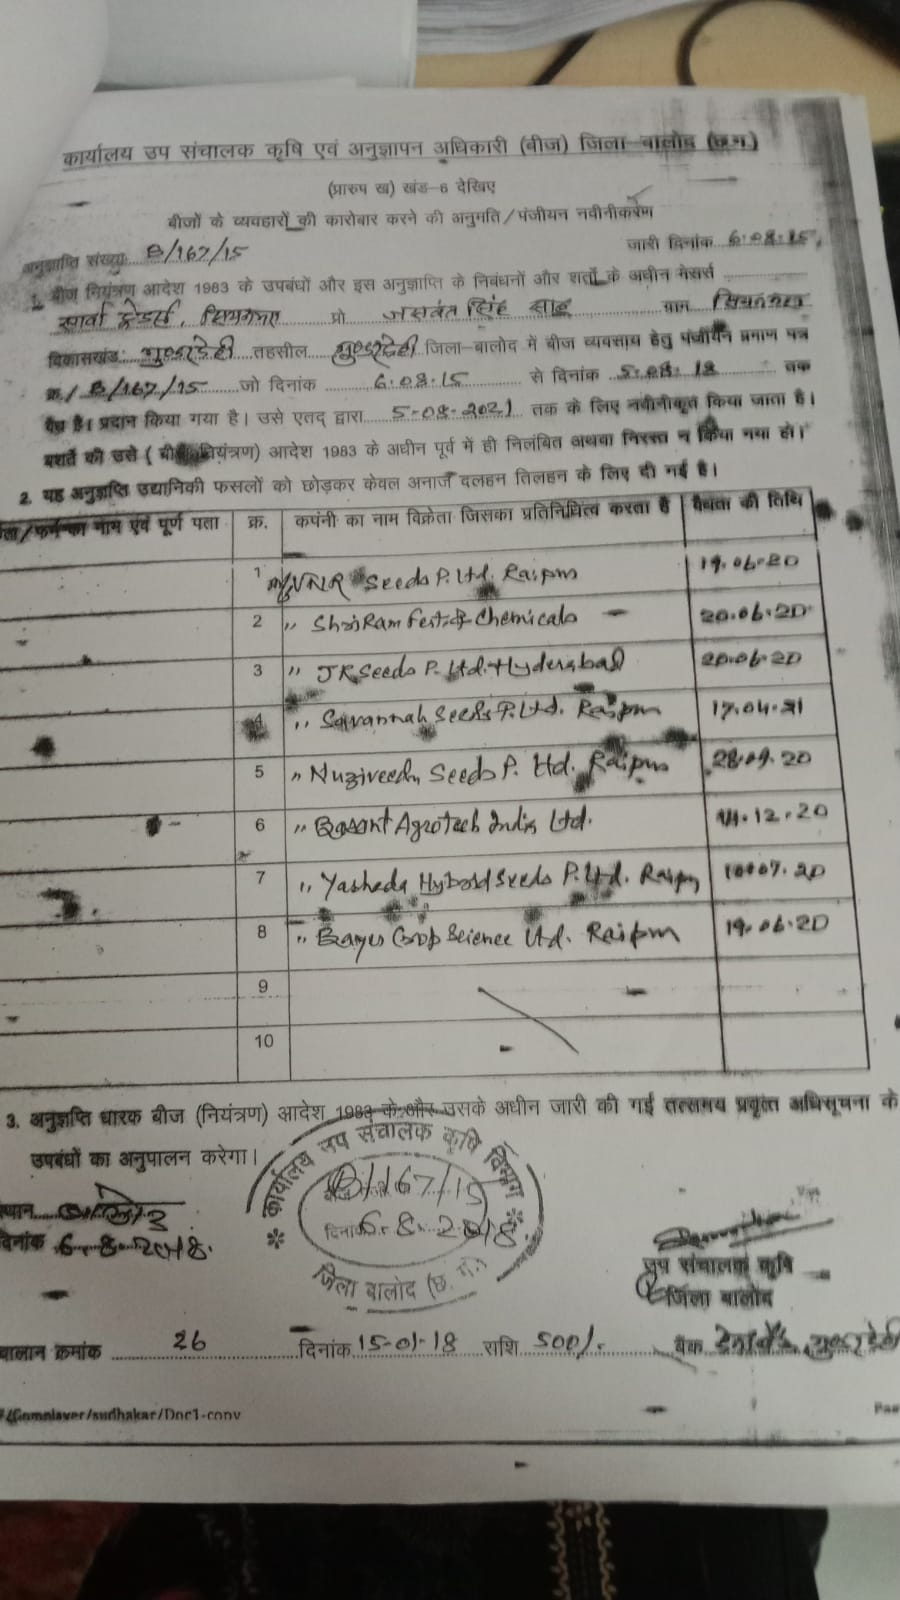 कार्यालय उप संचालक कृषि एवं अनुज्ञापन अधिकारी (बीज) जिला-बालोद (छ.ग.)
(प्रारुप ख) खंड-6 देखिए
बीजों के व्यवहारों की कारोबार करने की अनुमति/पंजीयन नवीनीकरण
अनुज्ञाप्ति संख्या B/167/15 जारी दिनांक 6.08.15
1. बीज नियंत्रण आदेश 1983 के उपबंधों और इस अनुज्ञाप्ति के निबंधनों और शर्तों के अधीन मेसर्स
ट्रेडर्स, प्रो जसवंत सिंह साहू ग्राम
विकासखंड: गुण्डरदेही तहसील गुण्डरदेही जिला-बालोद में बीज व्यवसाय हेतु पंजीयन प्रमाण पत्र
क्र./B/167/15 जो दिनांक 6.08.15 से दिनांक 5.08.18 तक
वैध है। प्रदान किया गया है। उसे एतद् द्वारा 5-08-2021 तक के लिए नवीनीकृत किया जाता है।
बशर्ते की उसे (बीज नियंत्रण) आदेश 1983 के अधीन पूर्व में ही निलंबित अथवा निरस्त न किया गया हो।
2. यह अनुज्ञप्ति उद्यानिकी फसलों को छोड़कर केवल अनाज दलहन तिलहन के लिए दी गई है।
फर्म का नाम एवं पूर्ण पता क्र. कपंनी का नाम विक्रेता जिसका प्रतिनिधित्व करता है वैधता की तिथि
1 VNR Seeds P. Ltd. Raipur 19.06.20
2 ,, Shri Ram Fert. & Chemicals - 20.06.20
3 ,, JK Seeds P. Ltd. Hyderabad 20.06.20
4 ,, Savannah Seeds P. Ltd. Raipur 17.04.21
5 ,, Nuziveedu Seeds P. Ltd. Raipur 28.09.20
6 ,, Basant AgroTech India Ltd. 14.12.20
7 ,, Yashoda Hybrid Seeds P. Ltd. Raipur 10.07.20
8 ,, Bayer Crop Science Ltd. Raipur 19.06.20
9
10
3. अनुज्ञप्ति धारक बीज (नियंत्रण) आदेश 1983 के और उसके अधीन जारी की गई तत्समय प्रवृत्त अधिसूचना के
उपबंधों का अनुपालन करेगा।
कार्यालय उप संचालक कृषि विभाग
B/167/15
दिनांक 6.8.2018
जिला बालोद (छ. ग.)
स्थान बालोद
दिनांक 6.8.2018
उप संचालक कृषि
जिला बालोद
चालान क्रमांक 26 दिनांक 15-01-18 राशि 500/- बैंक देना बैंक, गुण्डरदेही
/sudhakar/Doc1-conv